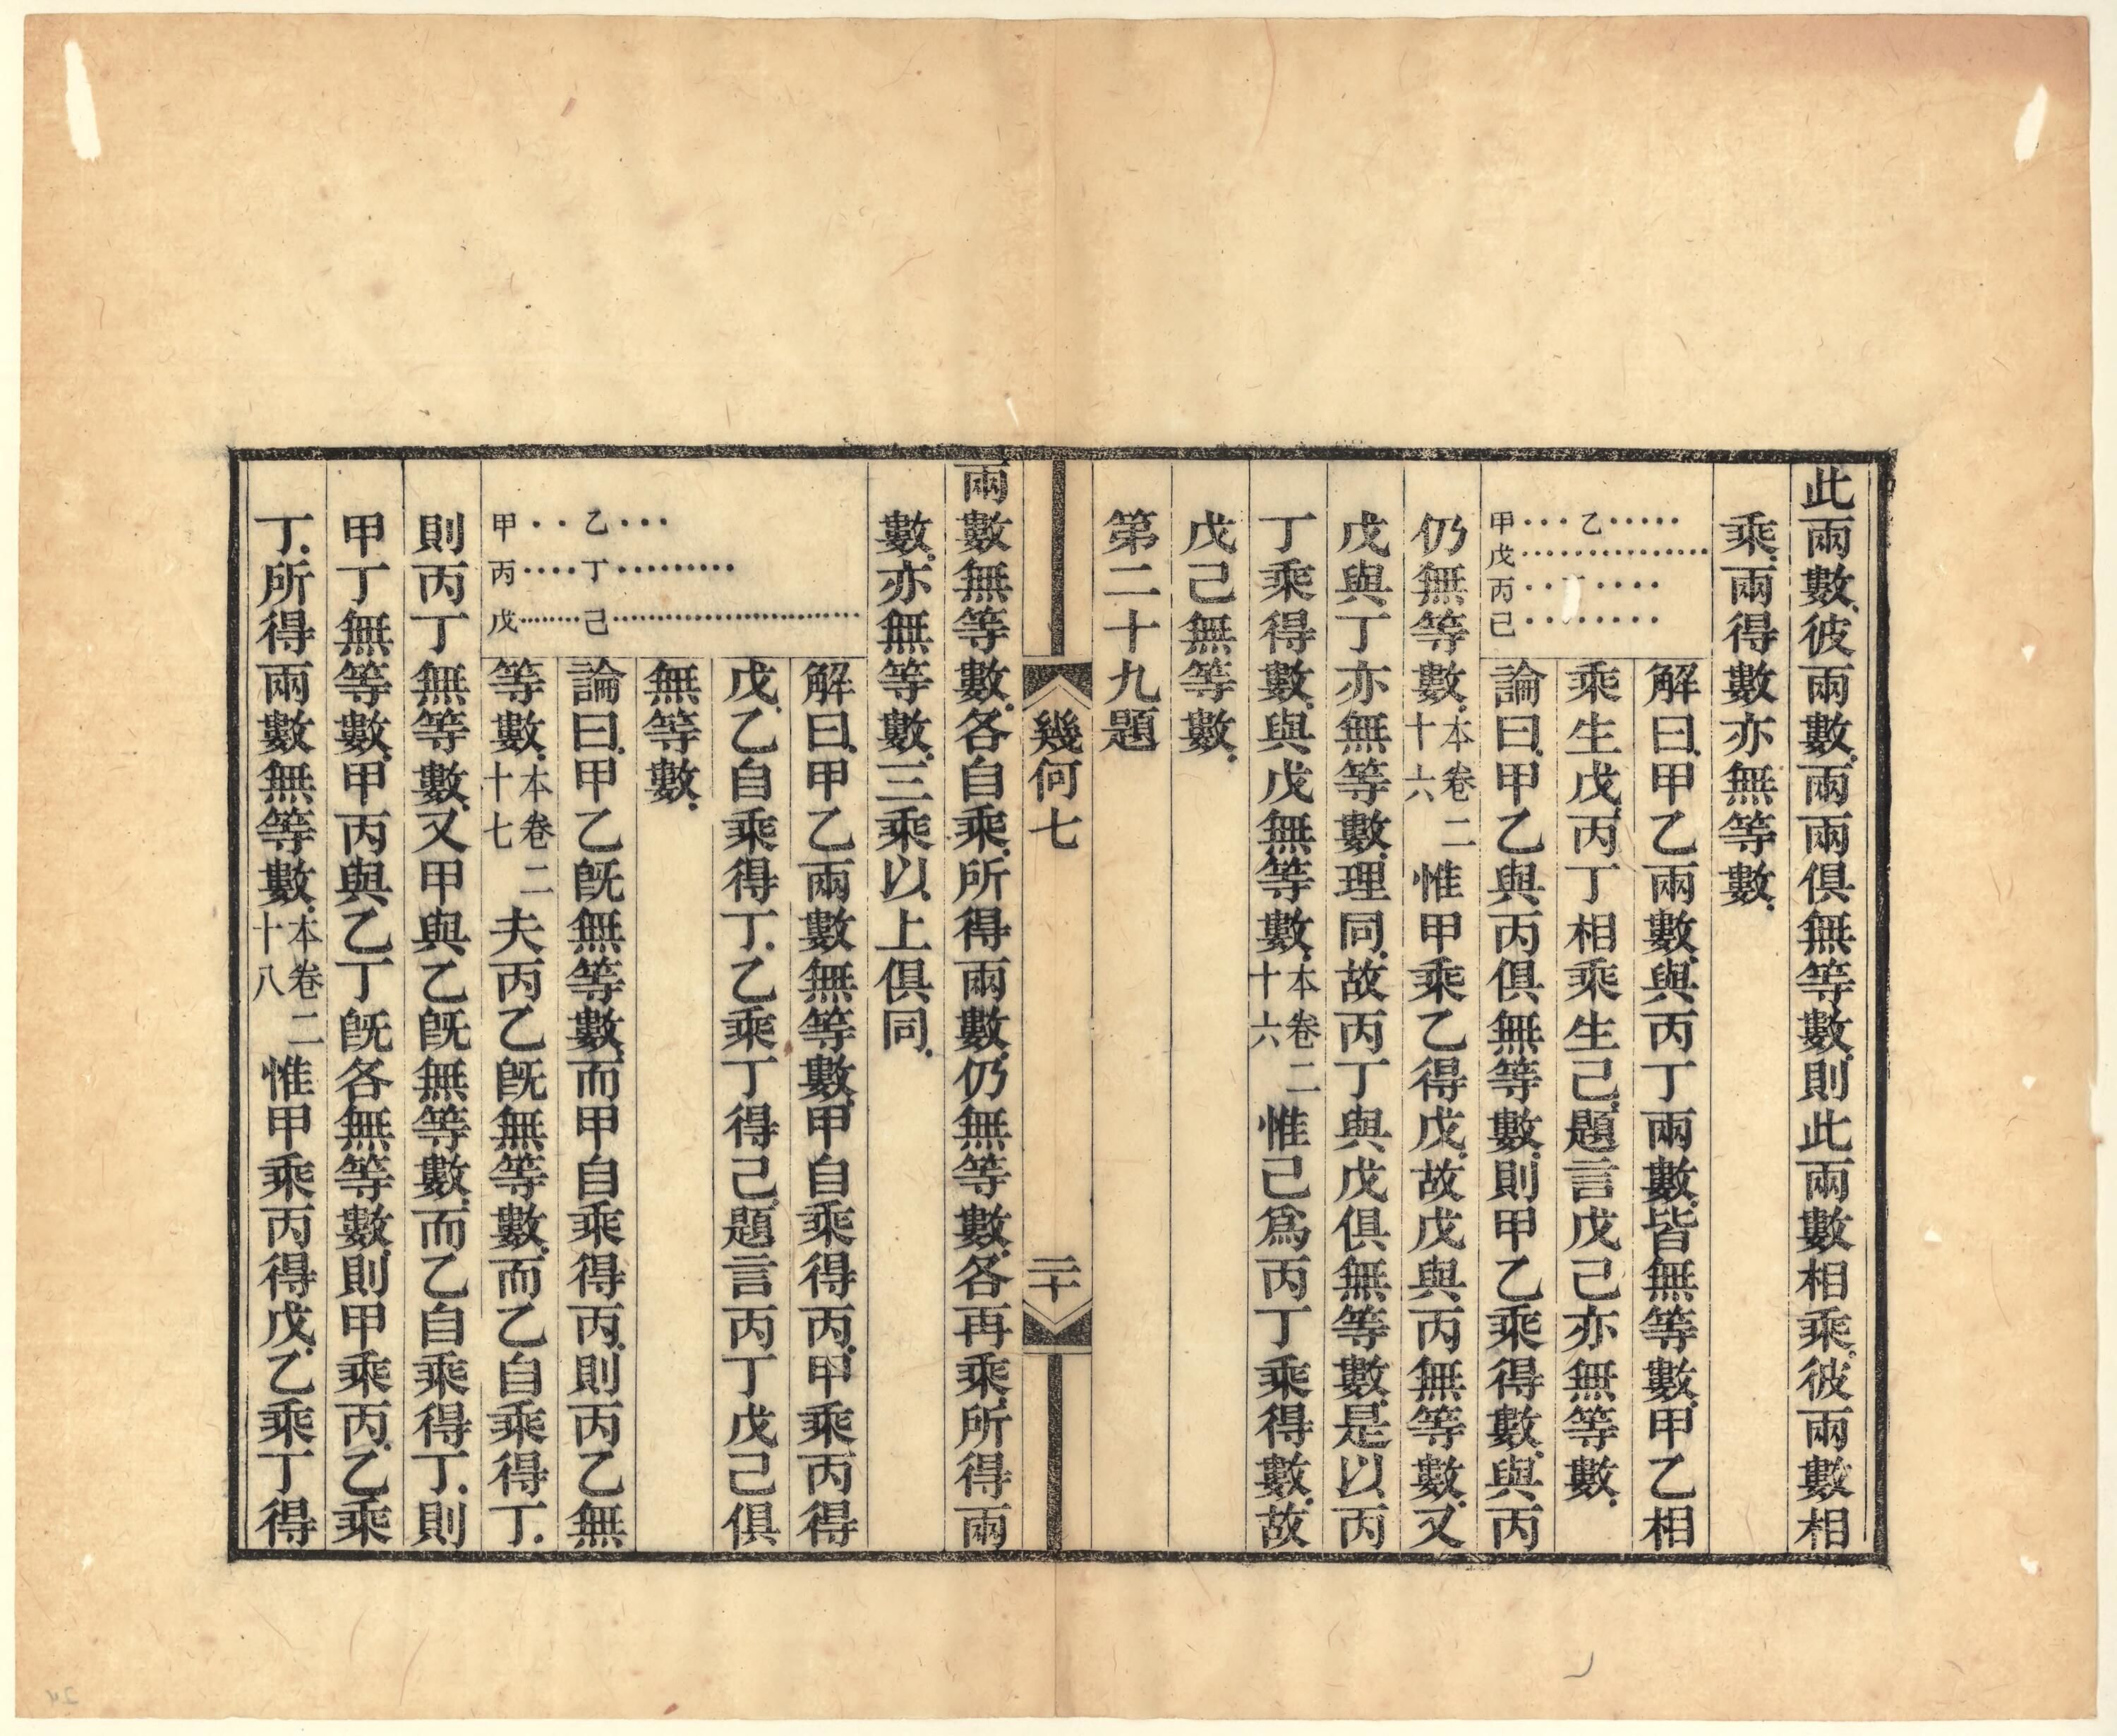 此兩數彼兩數兩兩俱無等數則此兩數相乘彼兩數相
乘兩得數亦無等數
甲 乙
戊
丙
己
解曰甲乙兩數與丙丁兩數皆無等數甲乙相
乘生戊丙丁相乘生己題言戊己亦無等數
論曰甲乙與丙俱無等數則甲乙乘得數與丙
仍無等數本卷二十六惟甲乘乙得戊故戊與丙無等數又
戊與丁亦無等數理同故丙丁與戊俱無等數是以丙
丁乘得數與戊無等數本卷二十六惟己爲丙丁乘得數故
戊己無等數
第二十九題
幾何七
二十
兩數無等數各自乘所得兩數仍無等數各再乘所得兩
數亦無等數三乘以上俱同
甲 乙
丙 丁
戊 己
解曰甲乙兩數無等數甲自乘得丙甲乘丙得
戊乙自乘得丁乙乘丁得己題言丙丁戊己俱
無等數
論曰甲乙旣無等數而甲自乘得丙則丙乙無
等數本卷二十七夫丙乙旣無等數而乙自乘得丁
則丙丁無等數又甲與乙旣無等數而乙自乘得丁則
甲丁無等數甲丙與乙丁旣各無等數則甲乘丙乙乘
丁所得兩數無等數本卷二十八惟甲乘丙得戊乙乘丁得